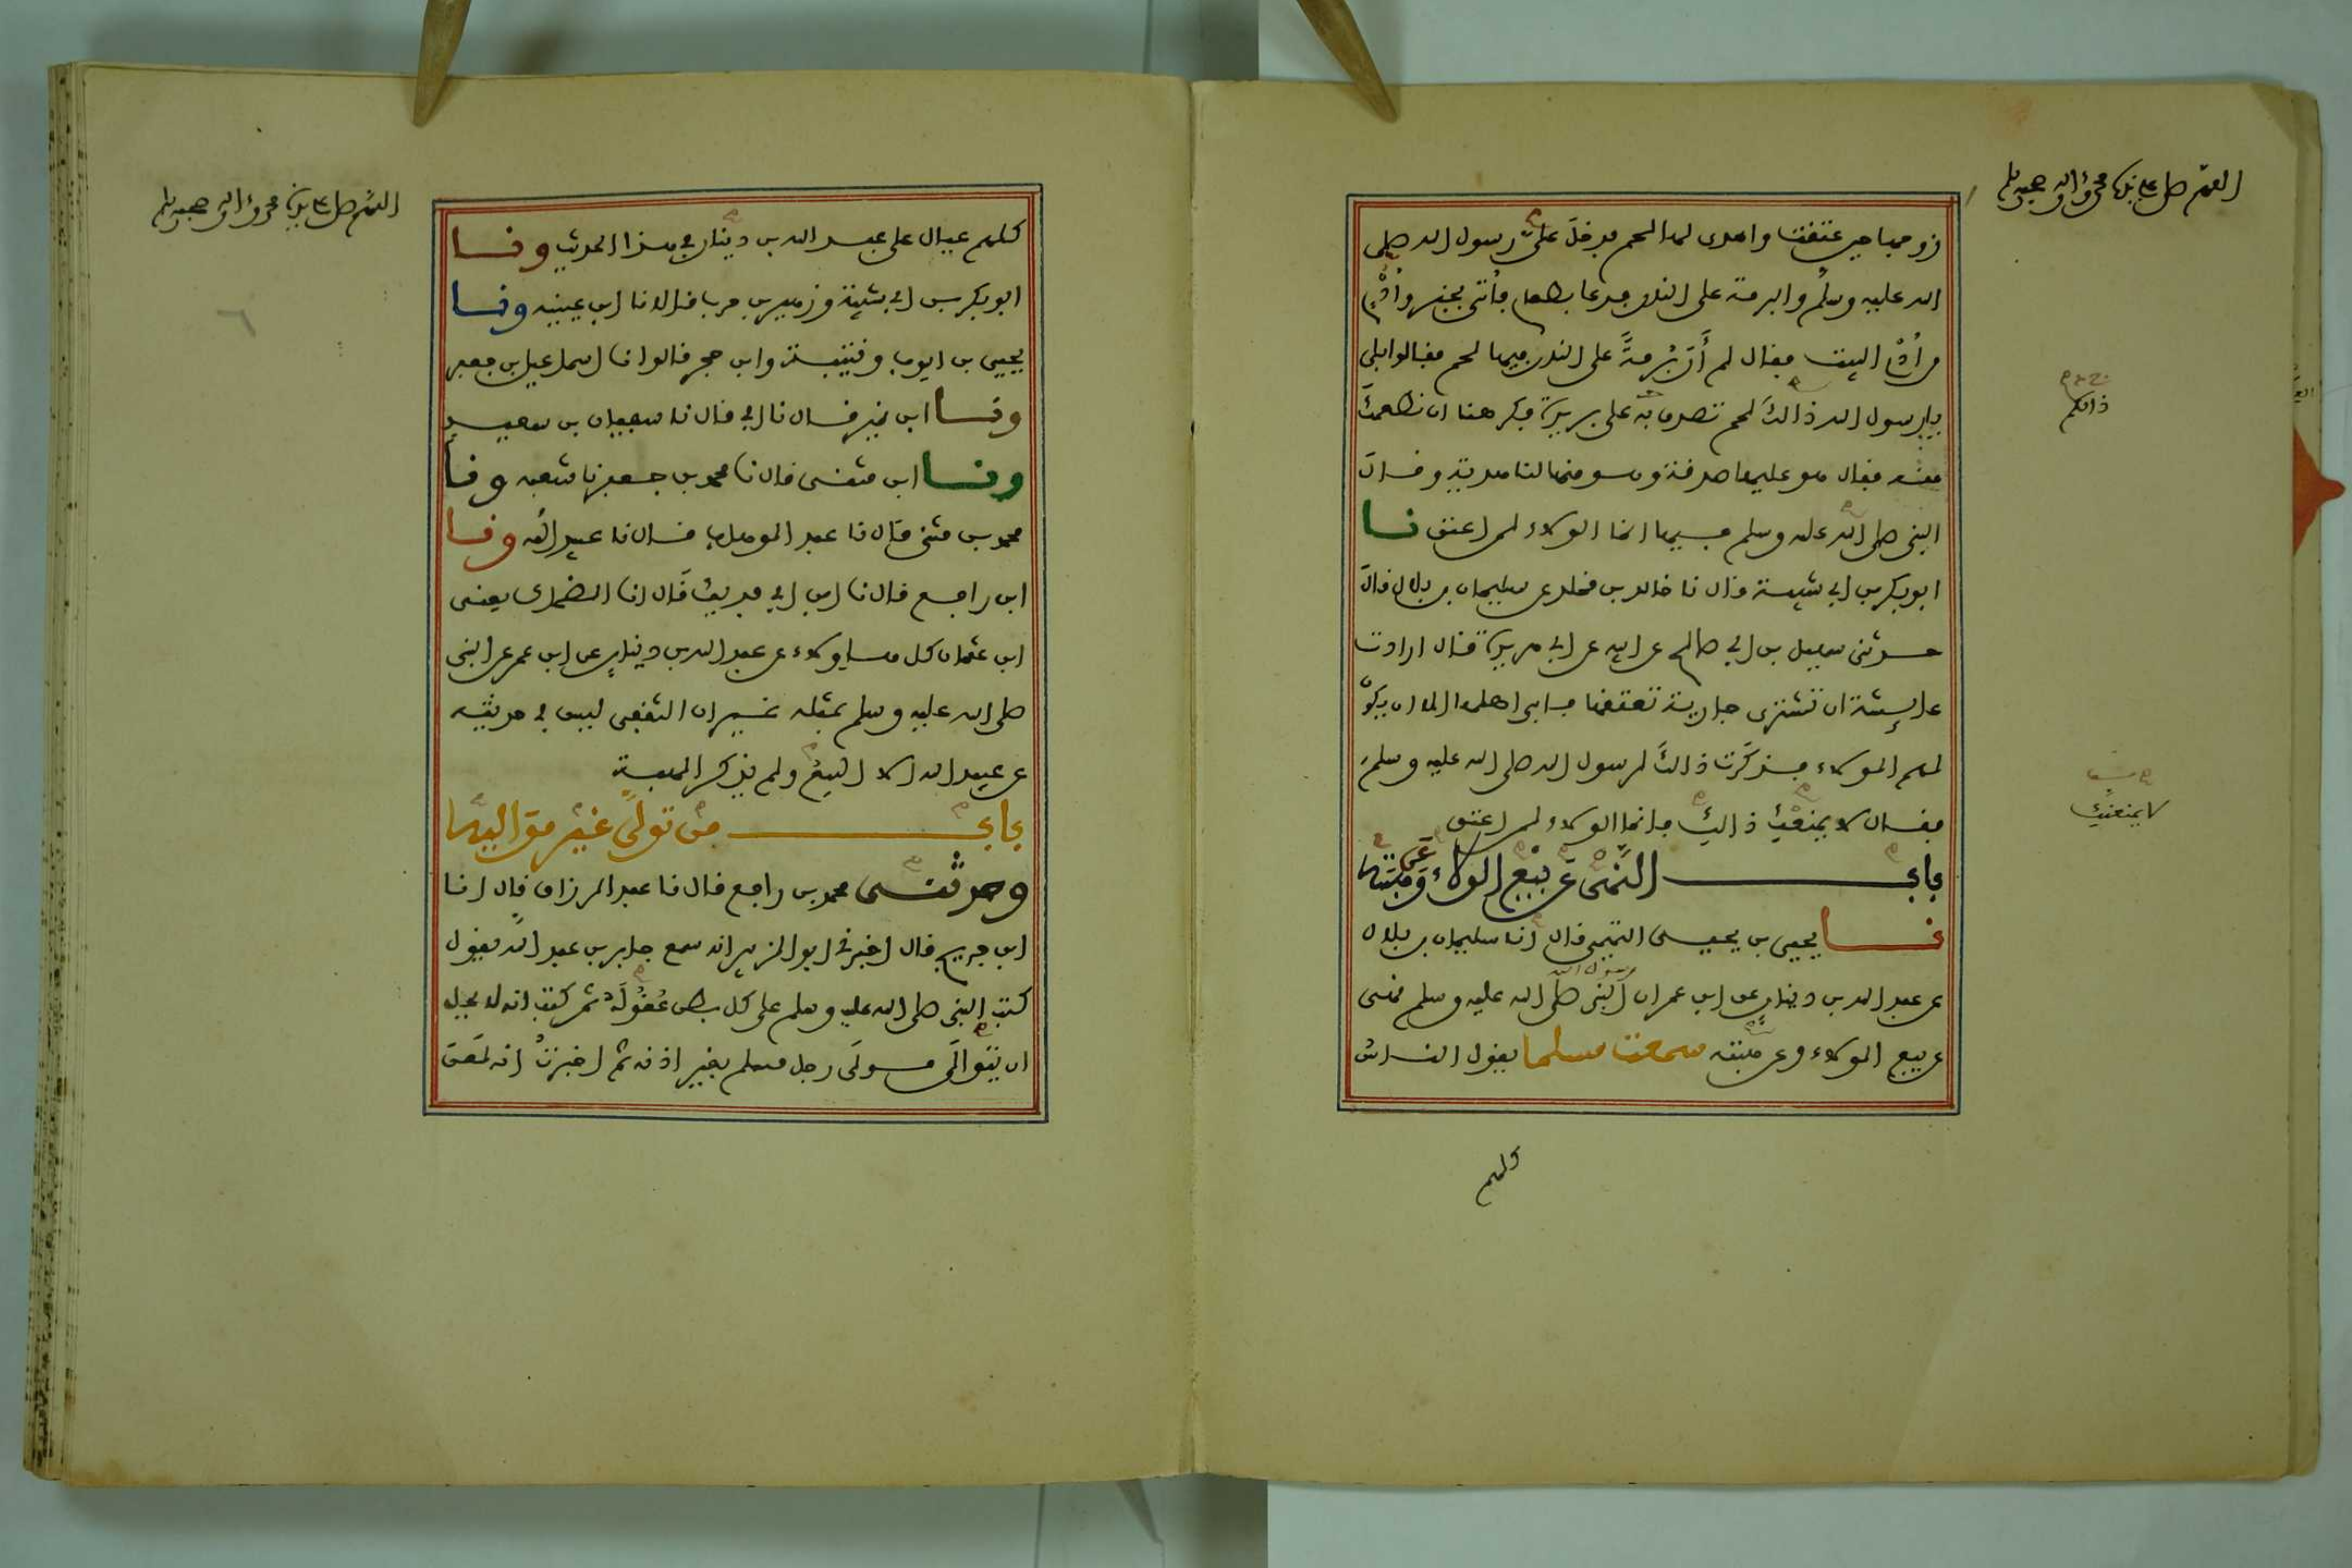 اللهم صل على نبينا محمد وءاله وصحبه وسلم
زوجها حين عتقت واهدى لها لحم فدخل على رسول الله صلى
الله عليه وسلم والبرمة على النار فدعا بطعام فأتى بخبز وأُدْمٍ
من أُدْم البيت فقال لم أَرَ بُرْمةً على النار فيها لحم فقالوا بلى
يا رسول الله ذالك لحم تصدق به على بريرة فكرهنا ان نطعمك
منه فقال هو عليها صدقة وهو منها لنا هدية وقال
النبى صلى الله عليه وسلم فيها انما الولاء لمن اعتق نا
ابو بكر بن ابى شيبة قال نا خالد بن مخلد عن سليمان بن بلال قال
حدثنى سهيل بن ابى صالح عن ابيه عن ابى هريرة قال ارادت
عايشة ان تشترى جارية تعتقها فابى اهلها الا ان يكون
لهم الولاء فذكَرَت ذالك لرسول الله صلى الله عليه وسلم
فقال لا يمنعْكِ ذالك فانما الولاء لمن اعتق
باب النهى عن بيع الولاء وعن هبته
نا يحيى بن يحيى التميمى قال انا سليمان بن بلال
عن عبد الله بن دينار عن ابن عمر ان النبى صلى الله عليه وسلم نهى
رسول الله
عن بيع الولاء وعن هبته سمعت مسلما يقول الناس
كلهم
ذالكم
لا يمنعنكِ
اللهم صل على نبينا محمد وءاله وصحبه وسلم
كلهم عيال على عبد الله بن دينار فى هذا الحديث ونا
ابو بكر بن ابى شيبة وزهير بن حرب قالا نا ابن عيينه ونا
يحيى بن ايوب وقتيبة وابن حجر قالوا نا اسماعيل بن جعفر
ونا ابن نمير قال نا ابى قال نا سفيان بن سعيد
ونا ابن مثنى قال نا محمد بن جعفر نا شعبه ونا
محمد بن مثنى قال نا عبد الوهاب قال نا عبيد الله ونا
ابن رافع قال نا ابن ابى فديك قال انا الضحاك يعنى
ابن عثمان كل هاولاء عن عبد الله بن دينار عن ابن عمر عن النبى
صلى الله عليه وسلم بمثله غير ان الثقفى ليس فى حديثه
عن عبيد الله الا البيعُ ولم يذكر الهبة
باب من تولى غير مواليه
وحدثنى محمد بن رافع قال نا عبد الرزاق قال انا
ابن جريج قال اخبرنى ابو الزبير انه سمع جابر بن عبد الله يقول
كتب النبى صلى الله عليه وسلم على كل بطن عُقُولَه ثم كتب انه لا يحل
ان يتوالى مولى رجل مسلم بغير اذنه ثم اخبرتُ انه لعن